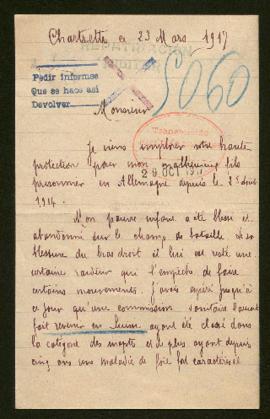 Chartrette le 23 Mars 1917
REPATRIACION
Pedir informes
Que se hace así
Devolver
5060
Monsieur
Je viens implorer votre haute
protection pour mon malheureux fils
prisonnier en Allemagne depuis le
1914.
29 OCT 191
Mon pauvre enfant a été blessé et
abandonné sur le champ de bataille et sa
blessure du bras droit il lui est resté une
certaine raideur qui l'empêche de faire
certains mouvements. J'avais espéré jusqu'à
ce jour qu'une commission sanitaire l'aurait
fait revenir en Suisse ayant été classé dans
la catégorie des inaptes et de plus ayant depuis
cinq ans une maladie de foie fort caractérisée